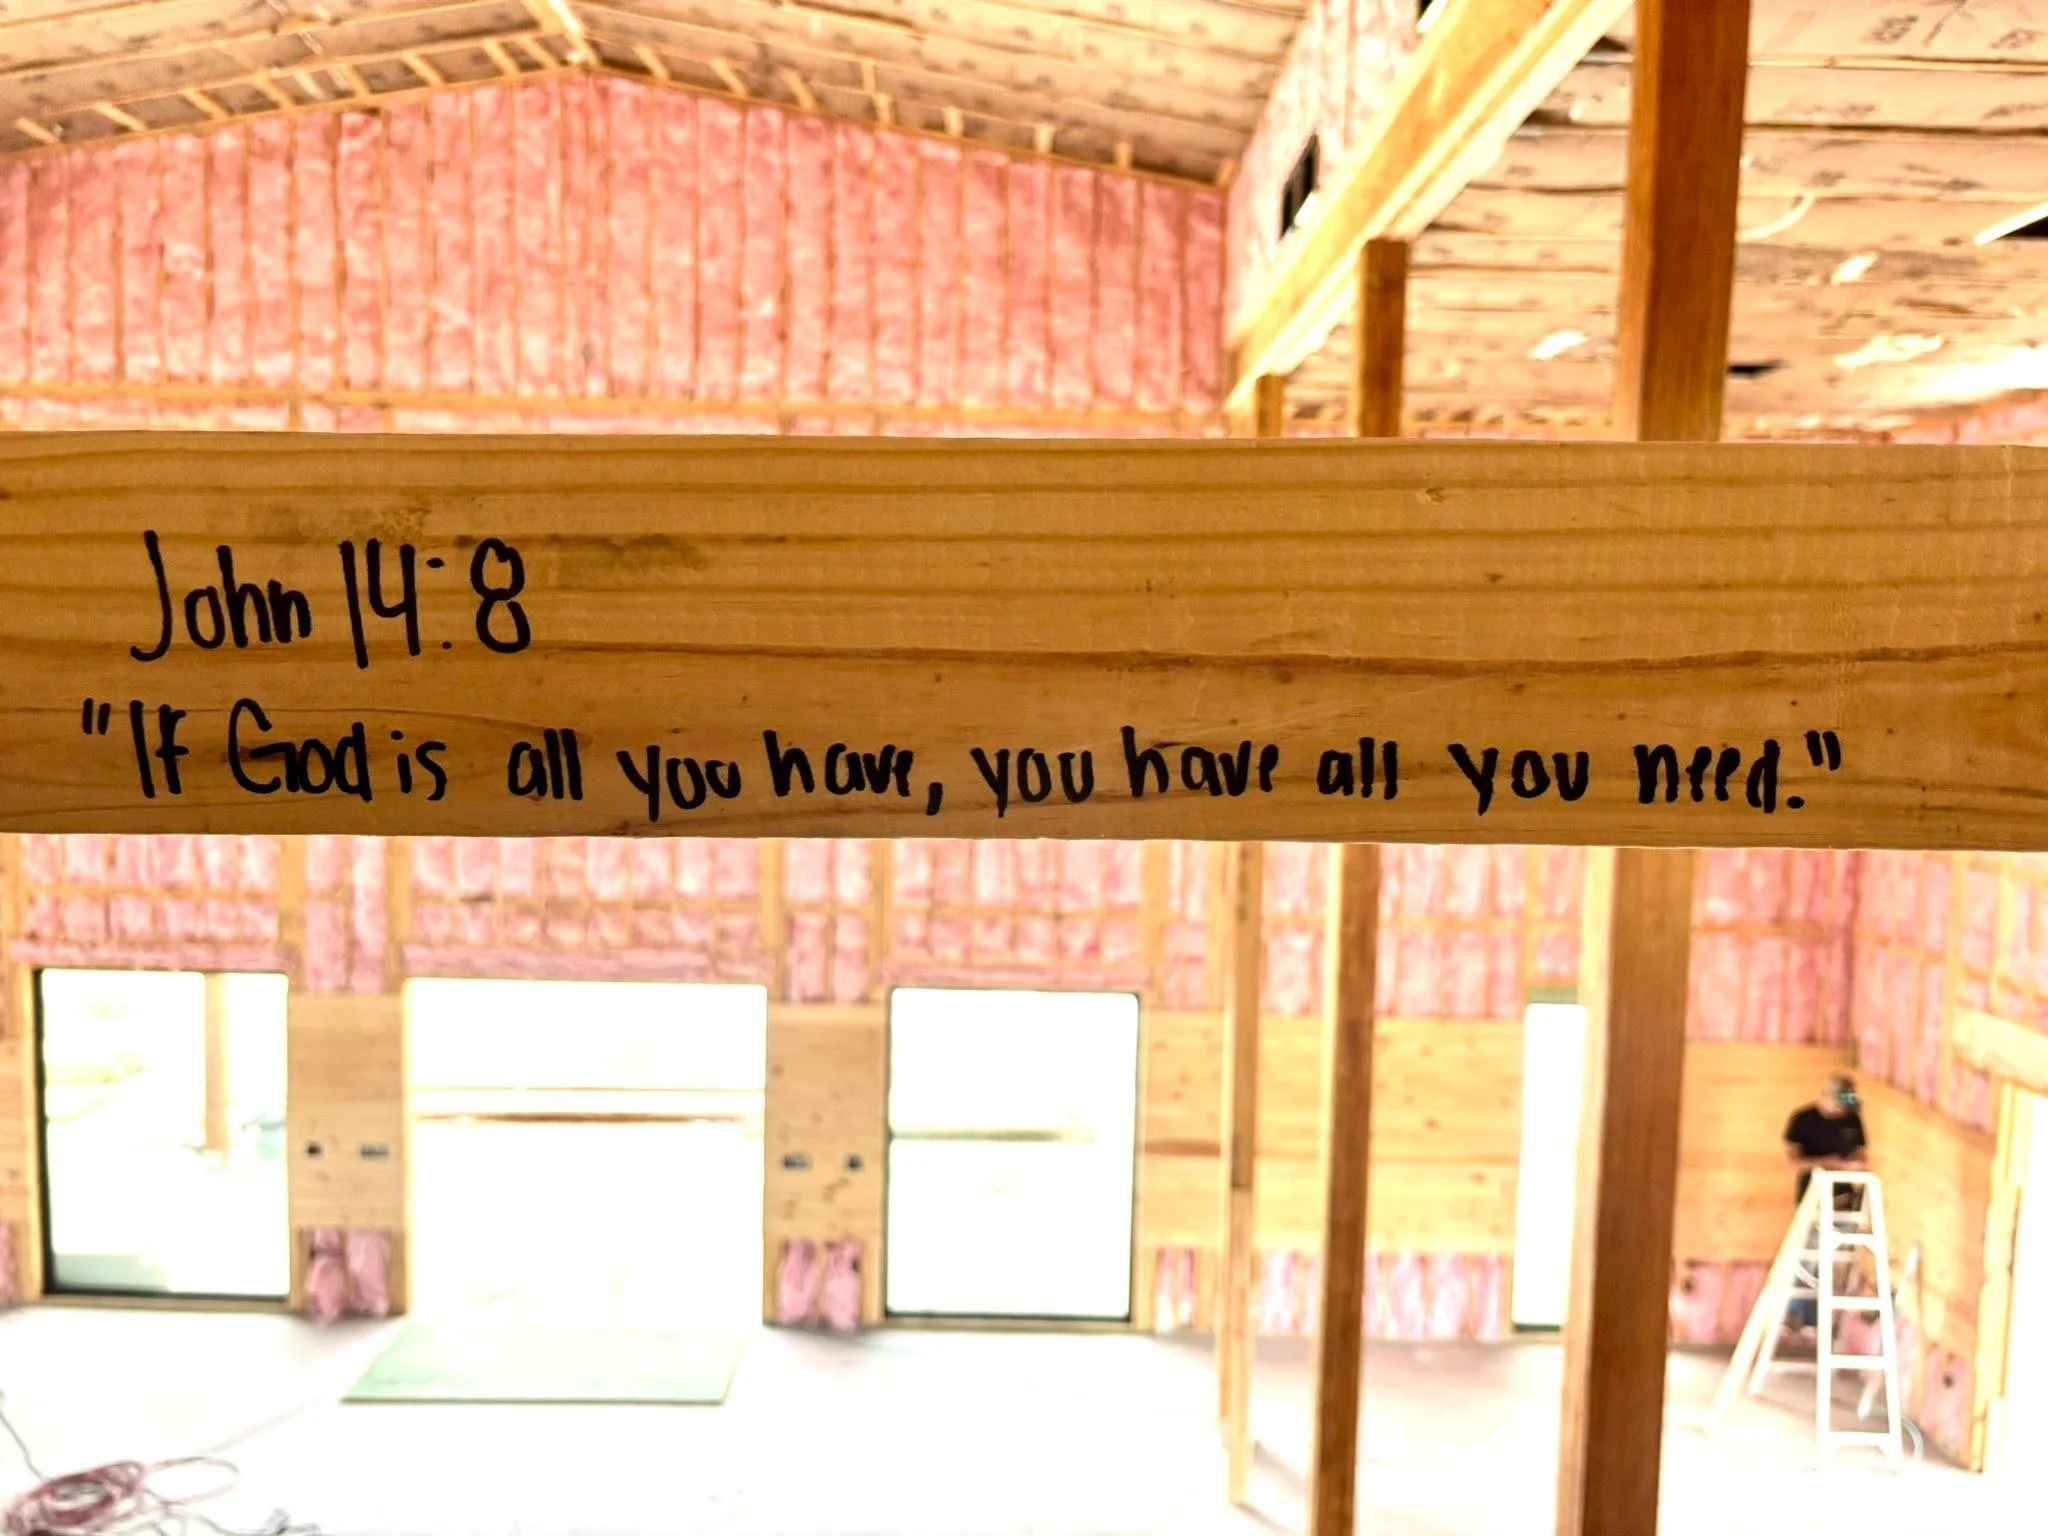 John 14:8
"If God is all you have, you have all you need."